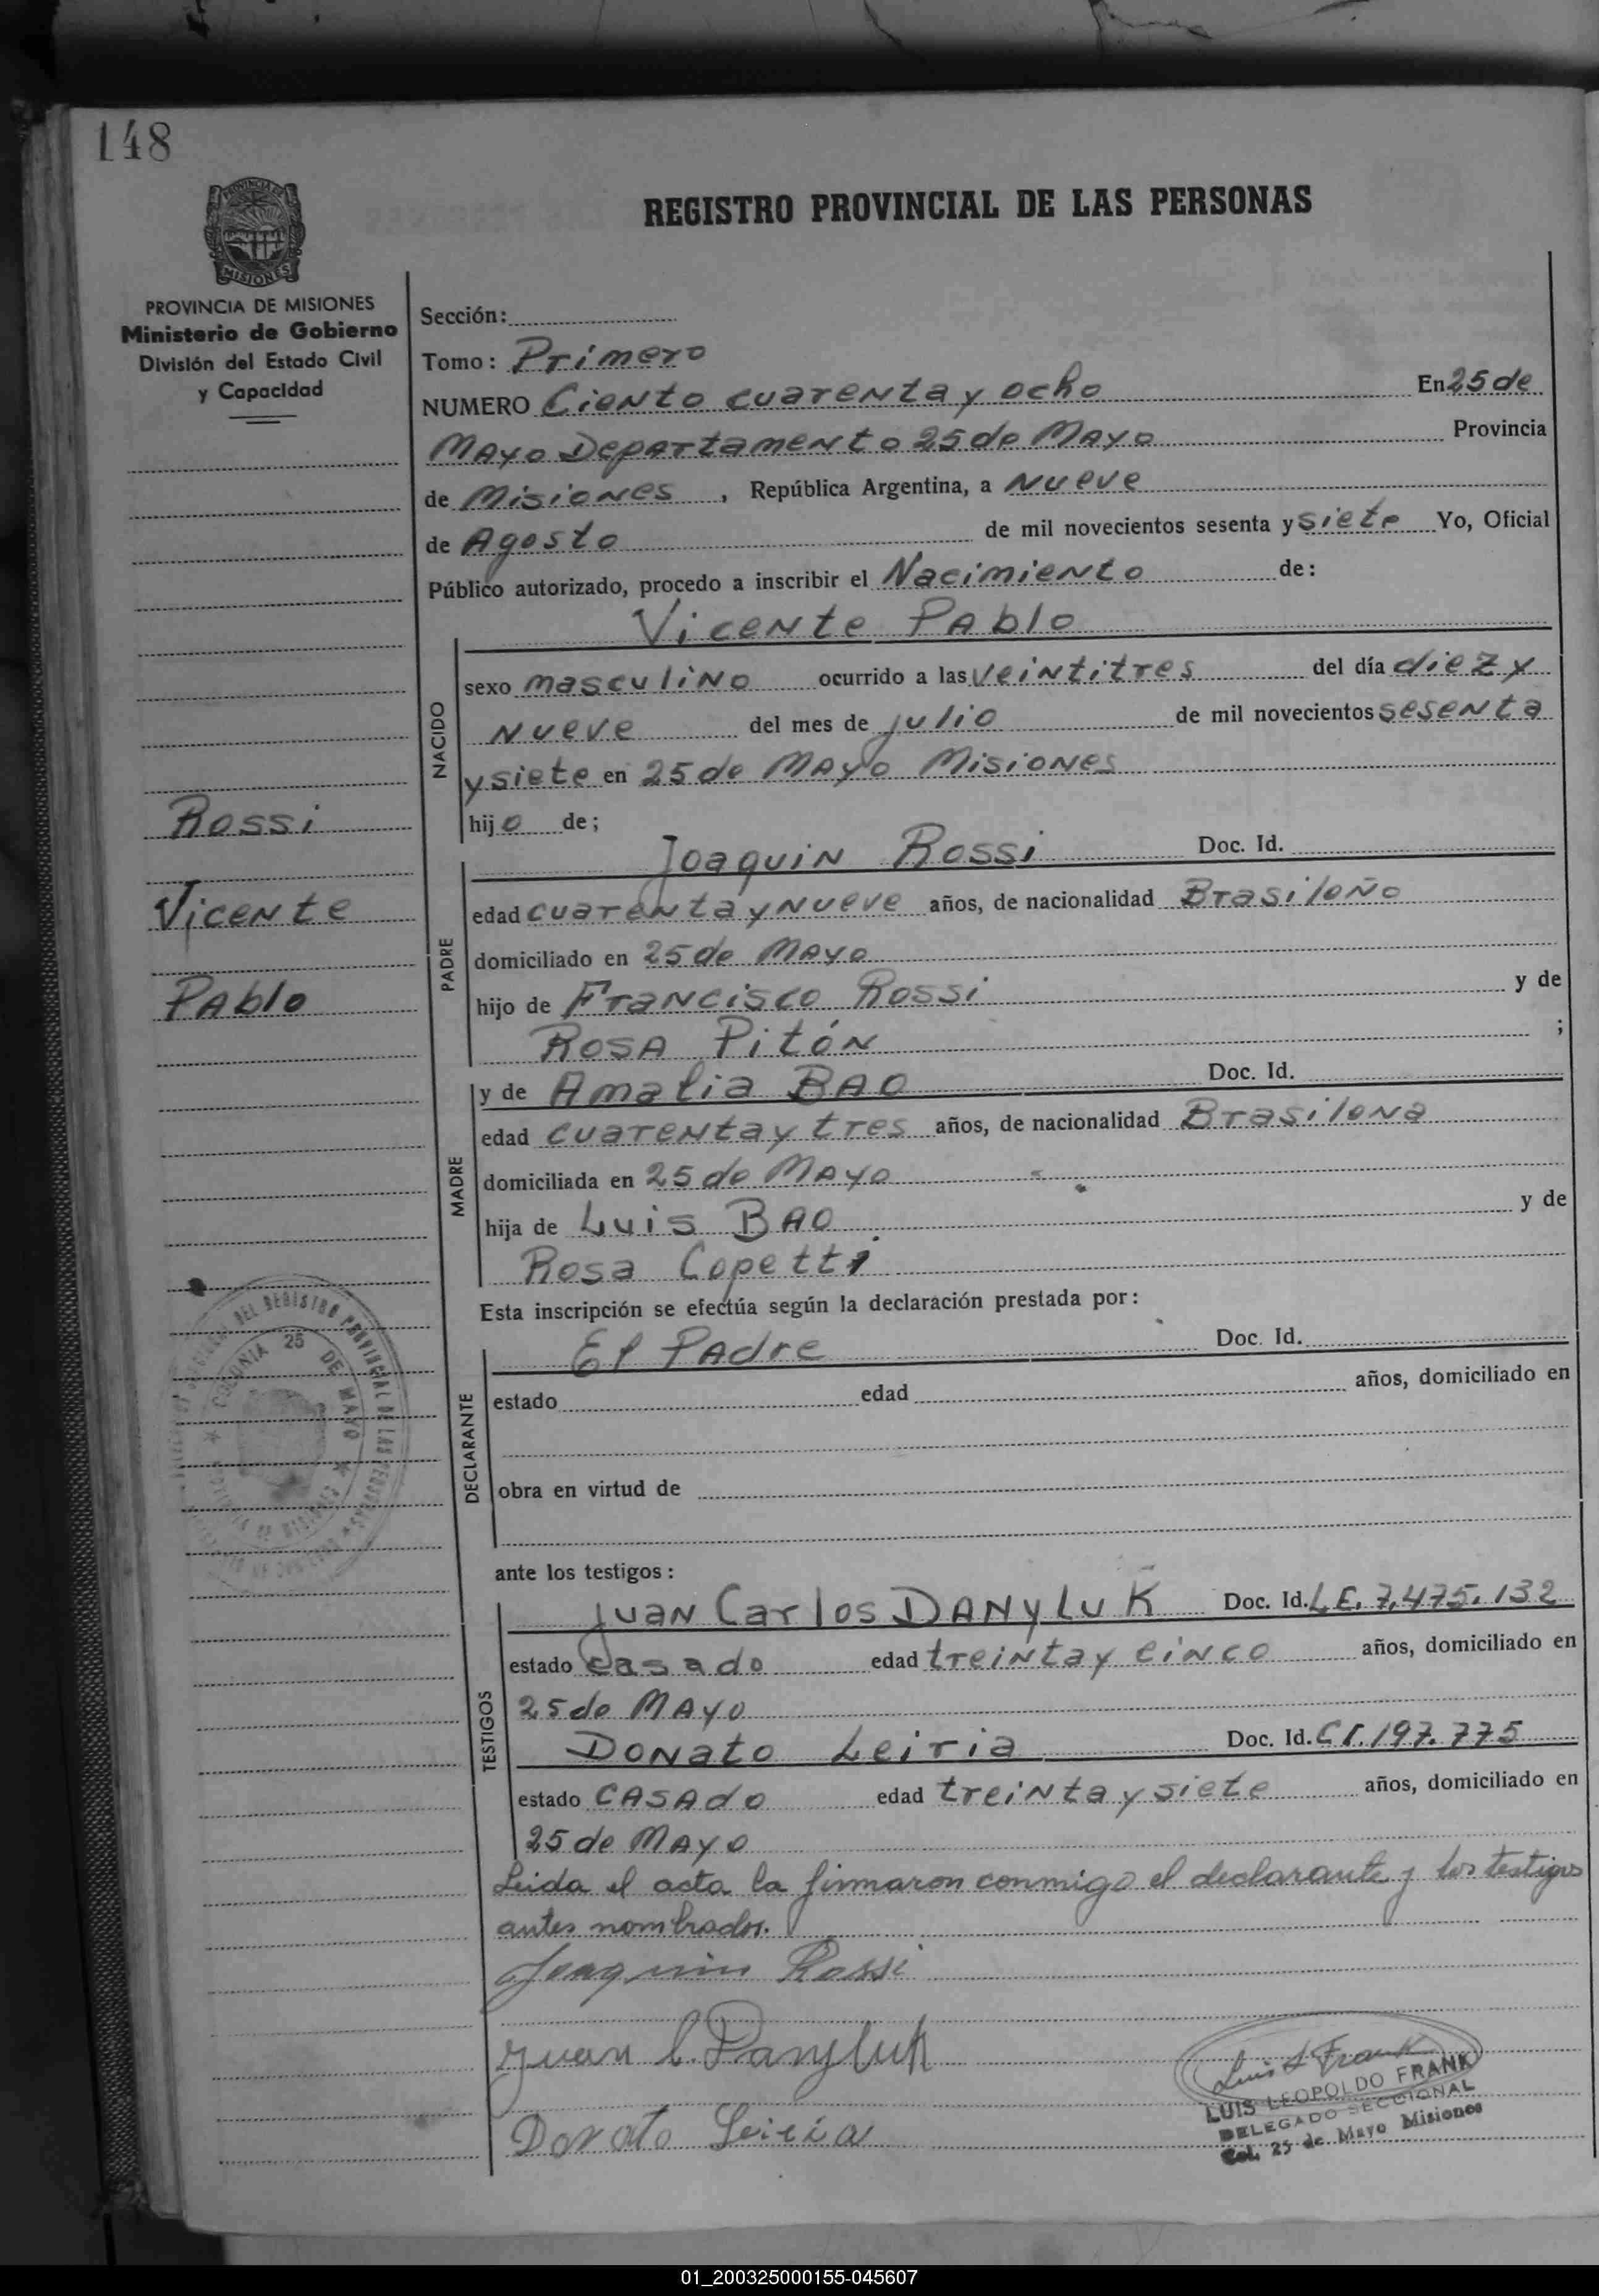 148
PROVINCIA DE
MISIONES
REGISTRO PROVINCIAL DE LAS PERSONAS
PROVINCIA DE MISIONES
Ministerio de Gobierno
División del Estado Civil
y Capacidad
Sección:
Tomo: Primero
NUMERO Ciento cuarenta y ocho En 25 de
Mayo Departamento 25 de Mayo Provincia
de Misiones, República Argentina, a Nueve
de Agosto de mil novecientos sesenta y siete Yo, Oficial
Público autorizado, procedo a inscribir el Nacimiento de:
Vicente Pablo
NACIDO
sexo masculino ocurrido a las veintitres del día diez y
nueve del mes de julio de mil novecientos sesenta
y siete en 25 de Mayo Misiones
hijo de;
Rossi
Vicente
Pablo
PADRE
Joaquin Rossi Doc. Id.
edad cuarenta y nueve años, de nacionalidad Brasileño
domiciliado en 25 de Mayo
hijo de Francisco Rossi y de
Rosa Pitón ;
MADRE
y de Amalia Bao Doc. Id.
edad cuarenta y tres años, de nacionalidad Brasilena
domiciliada en 25 de Mayo
hija de Luis Bao y de
Rosa Copetti
Esta inscripción se efectúa según la declaración prestada por:
DECLARANTE
El Padre Doc. Id.
estado edad años, domiciliado en
obra en virtud de
DEL REGISTRO PROVINCIAL DE LAS PERSONAS
COLONIA 25 DE MAYO
DE MISIONES
ante los testigos:
TESTIGOS
Juan Carlos Danyluk Doc. Id. L.E. 7.475.132
estado casado edad treinta y cinco años, domiciliado en
25 de Mayo
Donato Leiria Doc. Id. C.I. 197.775
estado casado edad treinta y siete años, domiciliado en
25 de Mayo
Leida el acta la firmaron conmigo el declarante y los testigos
antes nombrados.
Joaquin Rossi
Juan C. Danyluk
Donato Leiria
Luis L Frank
LUIS LEOPOLDO FRANK
DELEGADO SECCIONAL
Col. 25 de Mayo Misiones
01_200325000155-045607